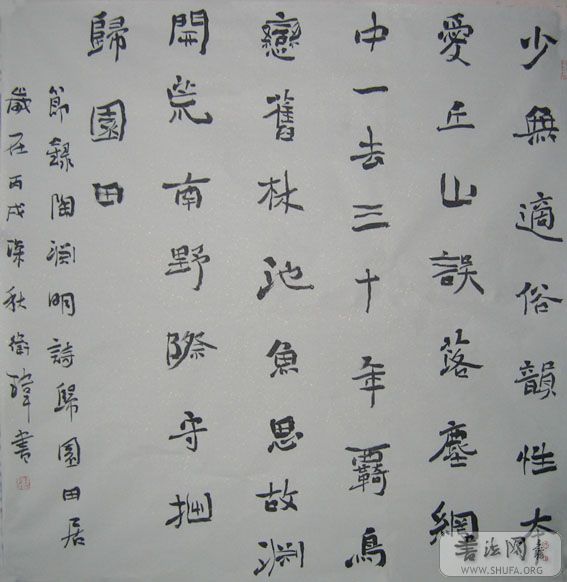 少無適俗韻性本
愛丘山誤落塵網
中一去三十年覊鳥
戀舊林池魚思故淵
開荒南野際守拙
歸園田
節錄陶淵明詩歸園田居
歲在丙戌深秋衛瑋書
書法网
WWW.SHUFA.ORG